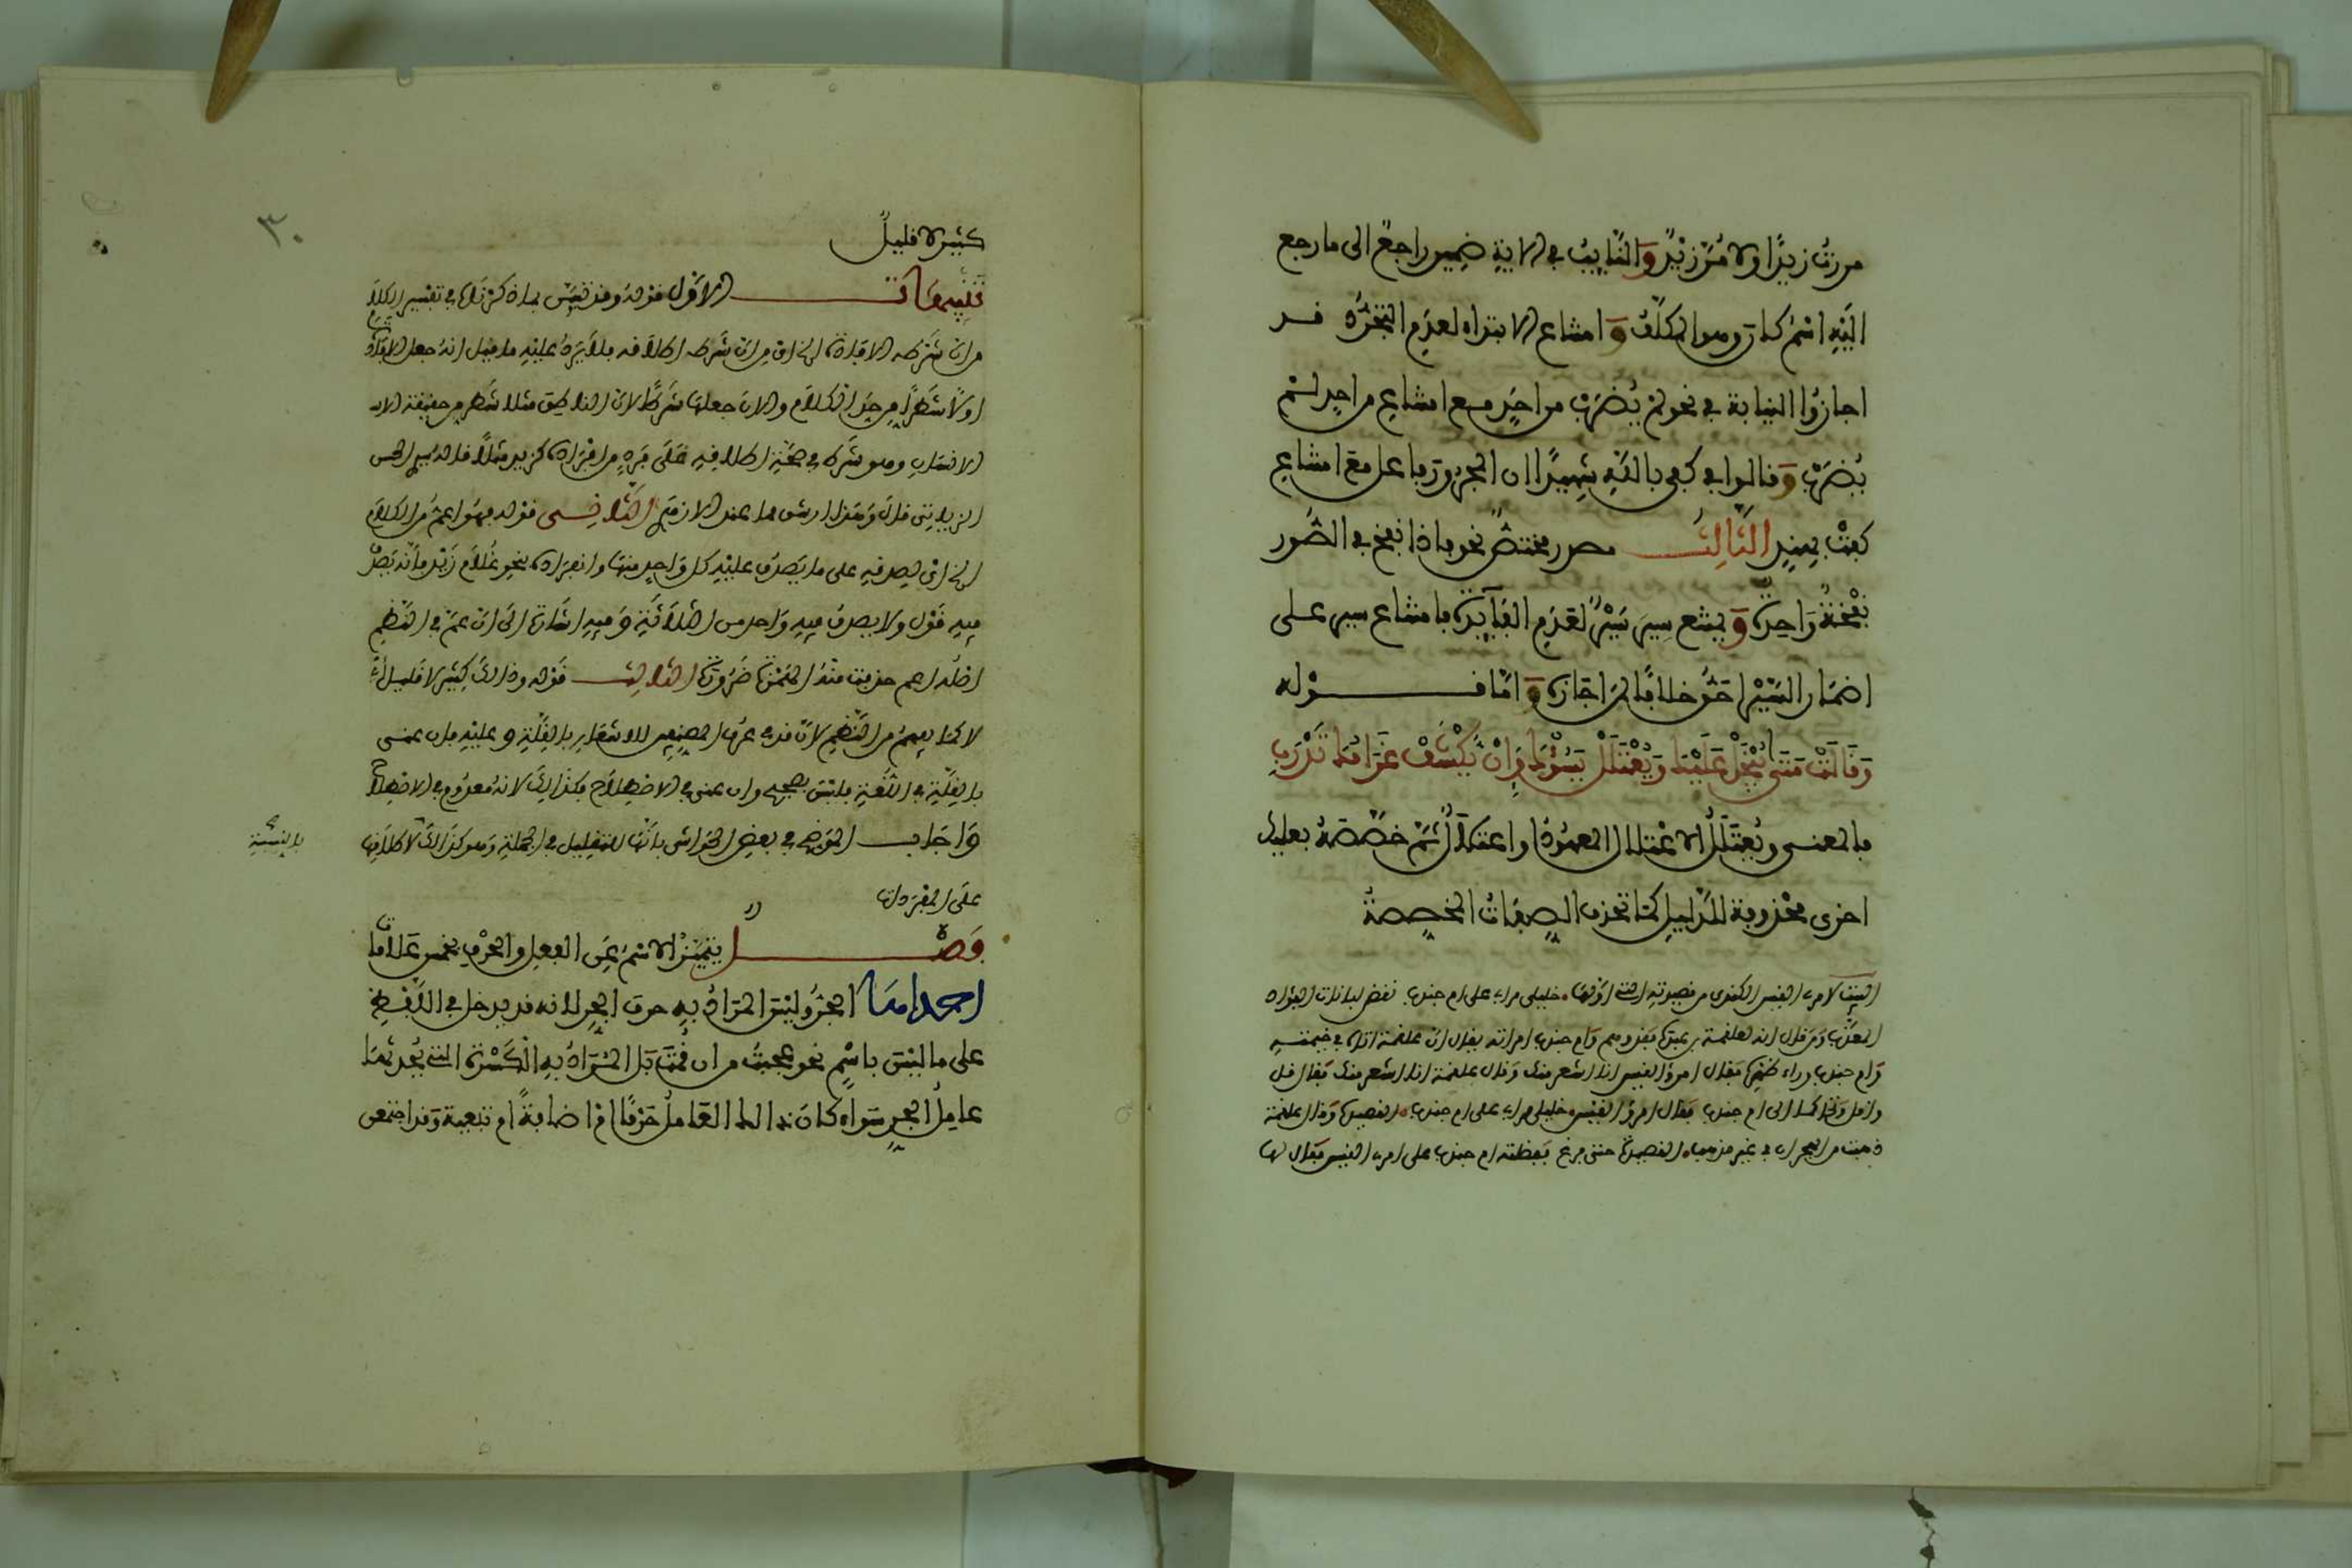 مررت زيدا ولا مر زيد والنايب في الاية ضمير راجع الى ما رجع
اليه اسم كان وهو المكلف وامتناع الابتداء لعدم التجرد قد
اجازوا النيابة في نحو لم يضرب من احد مع امتناع من احد لم
يضرب وقالوا في كفى بالله شهيدا ان المجرور فاعل مع امتناع
كفت بهند الثالث مصدر مختص نحو فاذا نفخ في الصور
نفخة واحدة ويمتنع سير سير لعدم الفايدة فامتناع سير على
اضمار السير احق خلافا لمن اجازه واما قوله
وقالت متى يبخل عليك ويعتلل يسؤك وان يكشف غرامك تدرب
فالمعنى ويعتلل الاعتلال المعهود او اعتلال ثم خصصه بعليك
اخرى محذوفة للدليل كما تحذف الصفات المخصصة
البيت لامرئ القيس الكندي من قصيدته التي اولها خليلي مرا بي على ام جندب نقض لبانات الفؤاد
المعذب ومن قال انه لعلقمة بن عبدة فقد وهم وام جندب امراته يقال ان علقمة اتاه في خيمته
وام جندب وراء فقال امرؤ القيس انا اشعر منك وقال علقمة انا اشعر منك فقال قل
واقول وتحاكما الى ام جندب فقال امرؤ القيس خليلي مرا بي على ام جندب القصيدة وقال علقمة
ذهبت من الهجران في غير مذهب القصيدة حتى فرغ ففضلته ام جندب على امرئ القيس فقال لها
٣٠
كثير لا قليل
تنبيهات الاول قوله وقد تبين بما ذكرناه في تفسير الكلام
من ان شرطه الافادة اي من ان شرط اطلاقه فلا يرد عليه ما قيل انه جعل الافادة
اولا شطرا من حد الكلام والان جعلها شرطا لان الناطق مثلا شطر من حقيقة الا
الانسان وهو شرط في صحة اطلاقه على فرد من افراده كزيد مثلا قاله شيخ الشيخ
قال وهذا الثاني قوله فهو اعم من الكلام
اي انه يصدق على ما يصدق عليه كل واحد منها وانفراده بنحو غلام زيد فانه يصدق
فيه قول ولا يصدق فيه واحد من الثلاثة وفيه اشارة الى ان عم في النظم
اصله اعم حذفت منه الهمزة ضرورة الثالث قوله وذلك كثير لا قليل اي
لا كما يفهم من النظم لان قد في عرف المصنفين للاشعار بالقلة وعليه فان عنى
بالقلة في اللغة فليس بصحيح وان عنى في الاصطلاح فكذلك لانه معدوم في الاصطلاح
واجاب الموضح في بعض الحواشي بانها للتقليل في الجملة وهو كذلك لاطلاقها
بالنسبة
على المفردات
فصل يتميز الاسم عن الفعل والحرف بخمس علامات
احداها الجر وليس المراد به حرف الجر لانه قد يدخل في اللفظ
على ما ليس باسم نحو عجبت من ان قمت بل المراد به الكسرة التي يحدثها
عامل الجر سواء كان ذالك العامل حرفا ام اضافة ام تبعية وقد اجتمعن